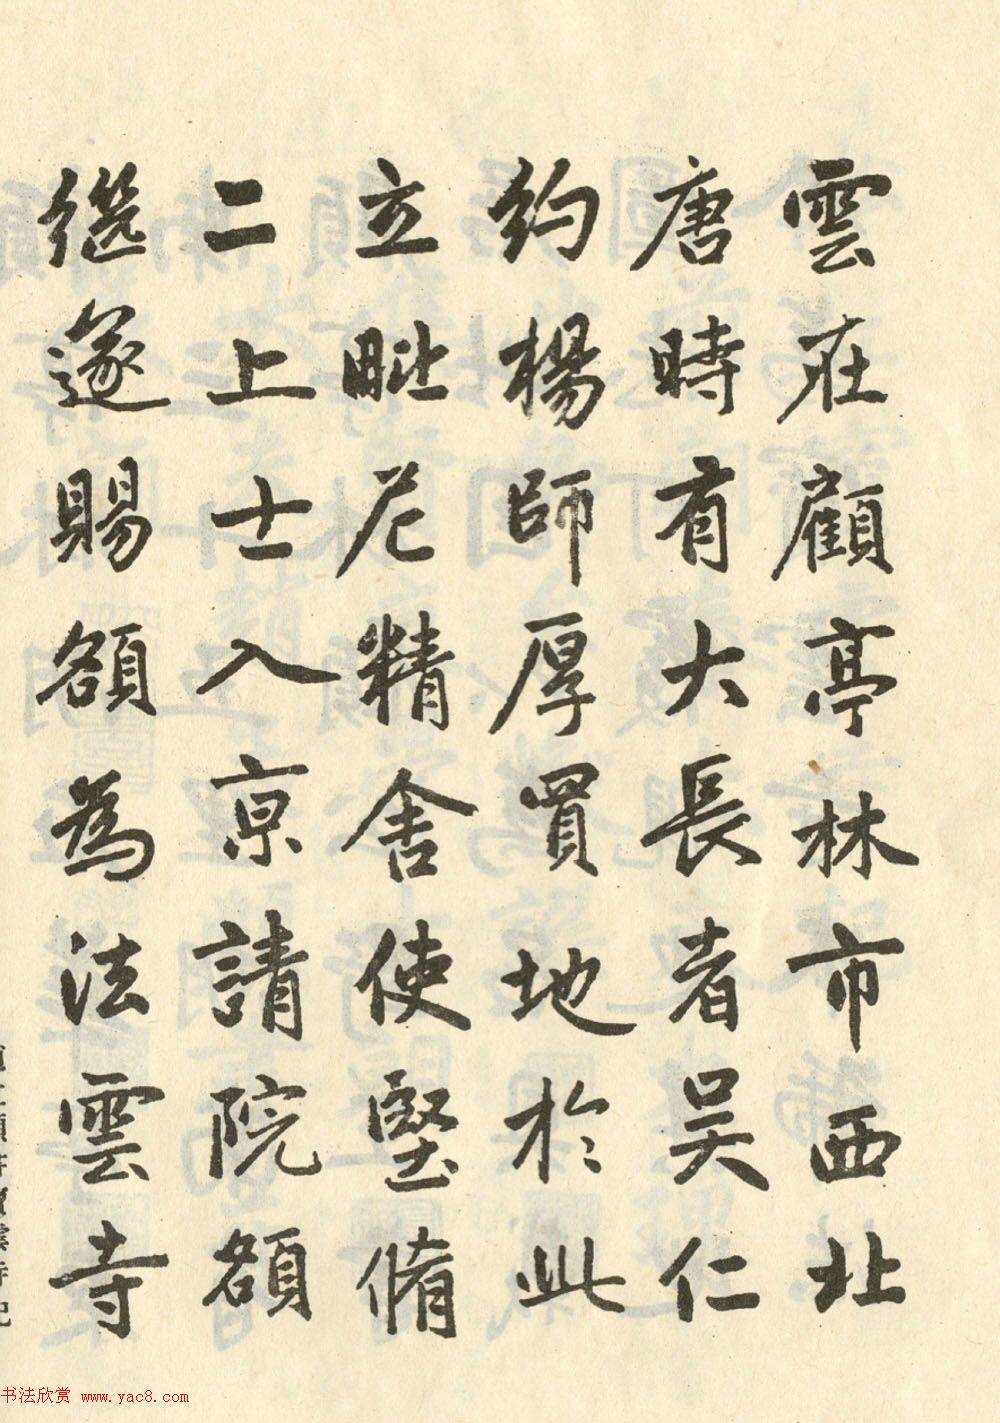 雲在顧亭林市西北
唐時有大長者吴仁
約楊師厚買地於此
立毗尼精舍使堅脩
二上士入京請院額
繼遂賜額為法雲寺
书法欣赏 www.yac8.com